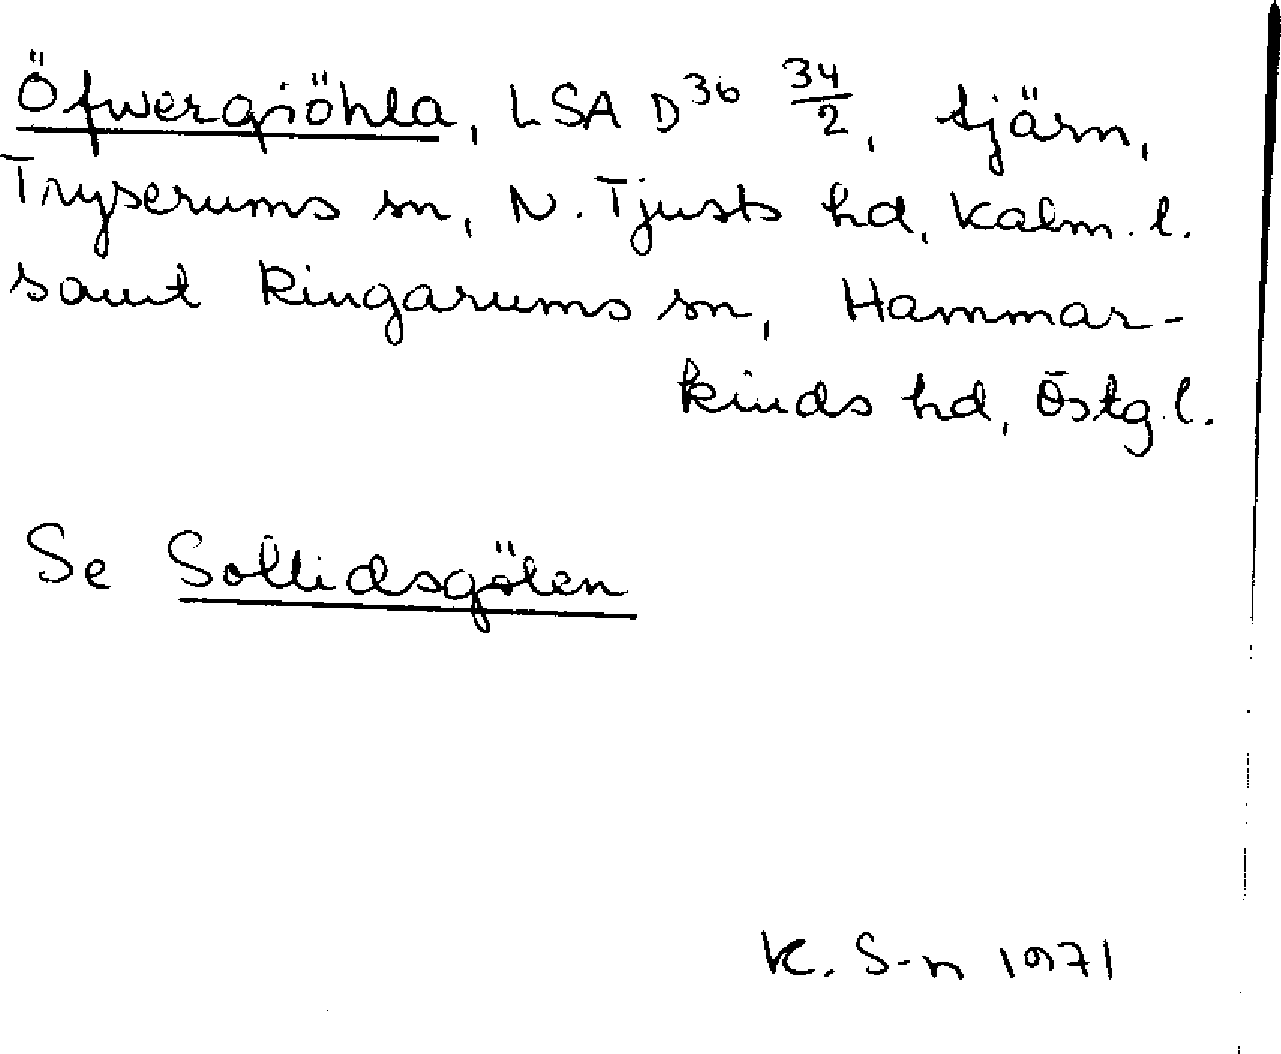 Öfwergiöhla, LSA D³⁶ 34/2, tjärn,
Tryserums sn, N. Tjusts hd, Kalm. l.
samt Ringarums sn, Hammar-
kinds hd, Östg. l.
Se Sollidsgölen
K. S-n 1971